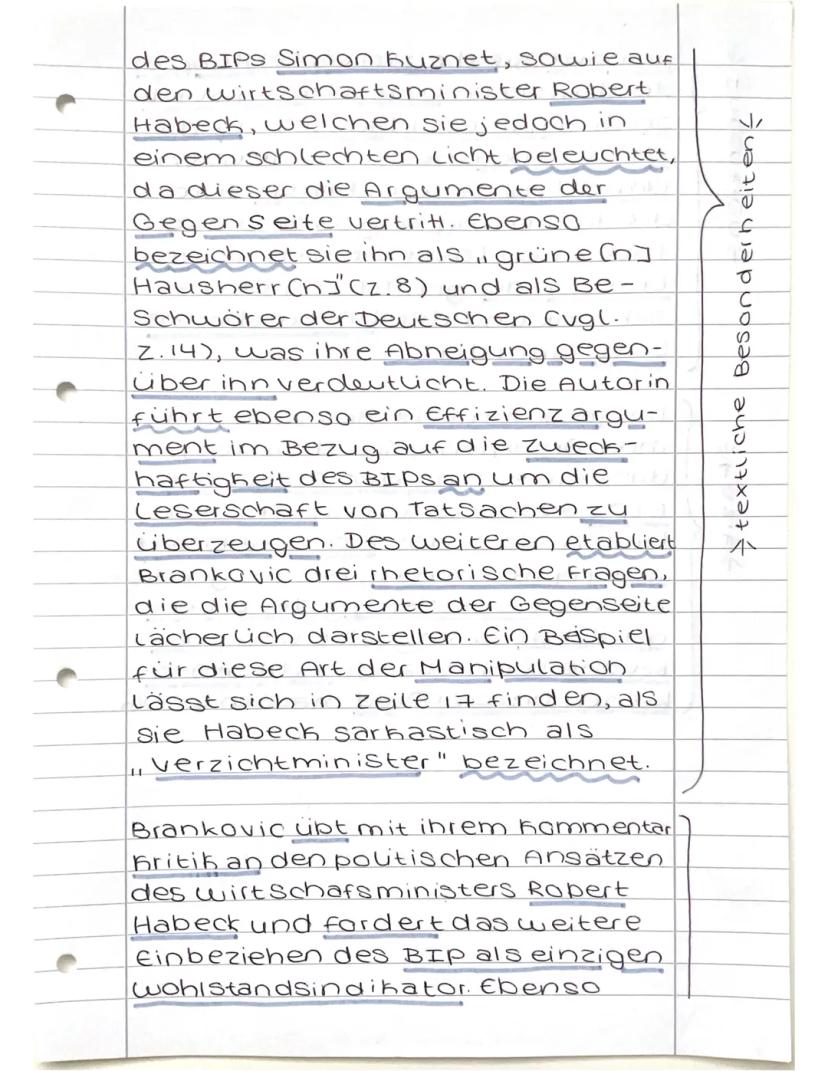 des BIPs Simon Kuznet, sowie auf
den Wirtschaftsminister Robert
Habeck, welchen sie jedoch in
einem schlechten Licht beleuchtet,
da dieser die Argumente der
Gegenseite vertritt. Ebenso
bezeichnet sie ihn als „grüne[n]
Hausherr[n]"(Z.8) und als Be-
schwörer der Deutschen (vgl.
Z.14), was ihre Abneigung gegen-
über ihn verdeutlicht. Die Autorin
führt ebenso ein Effizienzargu-
ment im Bezug auf die Zweck-
haftigkeit des BIPs an um die
Leserschaft von Tatsachen zu
überzeugen. Des weiteren etabliert
Brankovic drei rhetorische Fragen,
die die Argumente der Gegenseite
lächerlich darstellen. Ein Beispiel
für diese Art der Manipulation
lässt sich in Zeile 17 finden, als
sie Habeck sarkastisch als
„Verzichtminister" bezeichnet.
Brankovic übt mit ihrem Kommentar
Kritik an den politischen Ansätzen
des Wirtschafsministers Robert
Habeck und fordert das weitere
Einbeziehen des BIP als einzigen
Wohlstandsindikator. Ebenso
→textliche Besonderheiten←